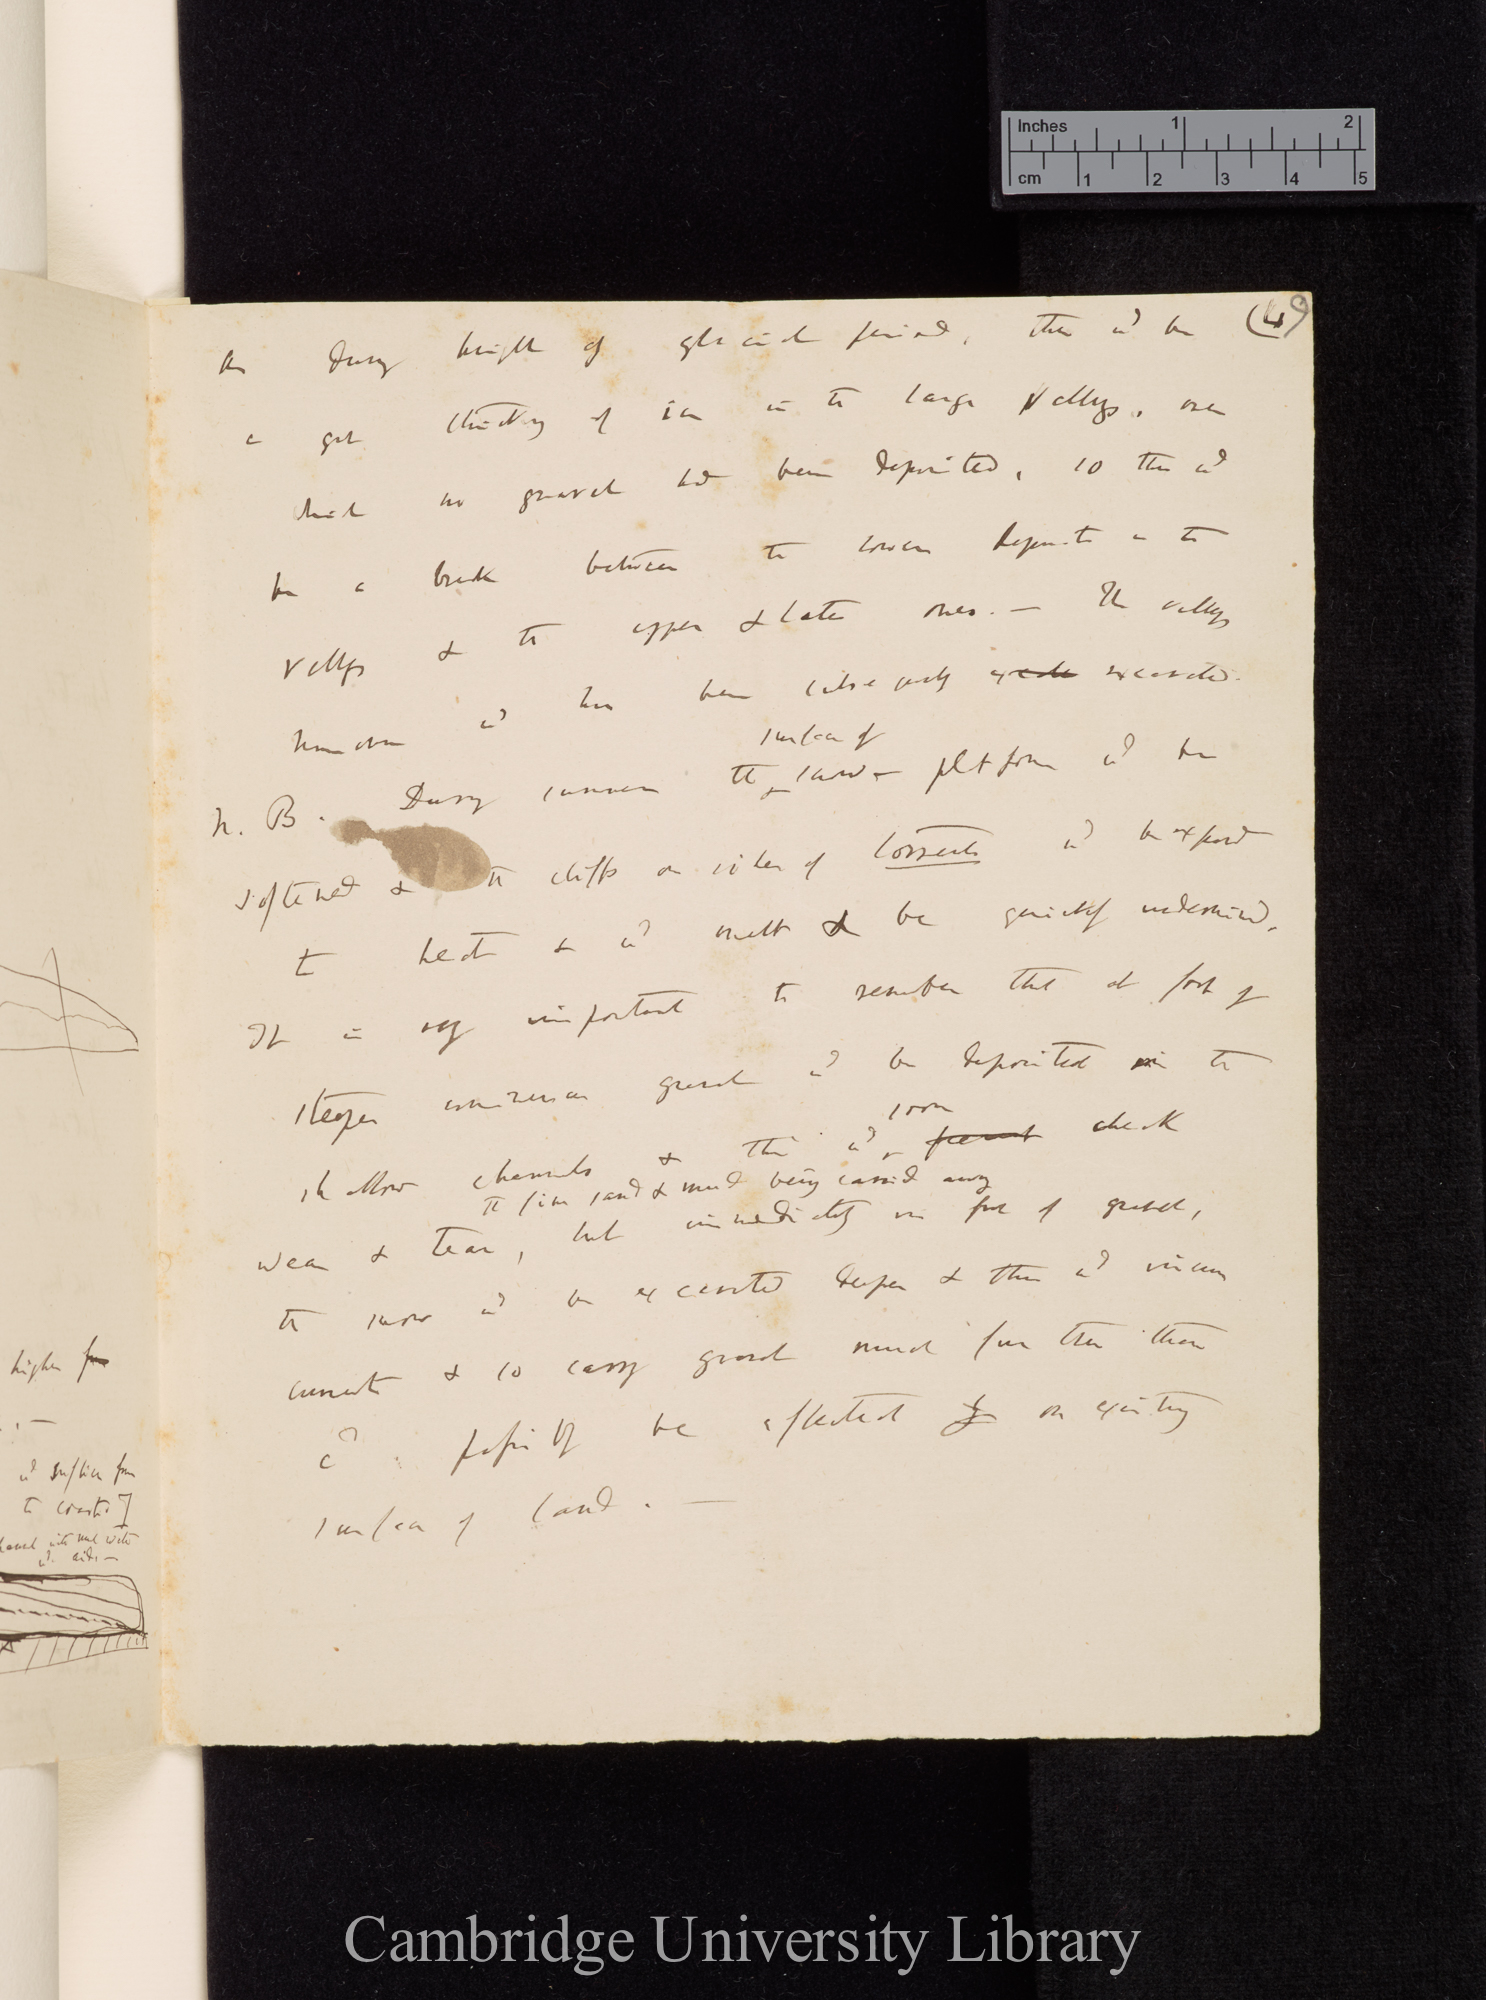 Inches 1 2
cm 1 2 3 4 5
(4
9
the During height of glacial period, there wd be
a great thickness of ice in the large Valleys, over
which no gravel had been deposited, so there wd
be a break between the lower deposits in the
valleys & the upper & later ones. — The valleys
however wd have been subsequently excavated.
surface of
N. B. During summer the snow platform wd be
softened & the cliffs on sides of torrents wd be exposed
to heat & wd melt & be quickly undermined.
It is very important to remember that at foot of
steeper gravel wd be deposited in the
soon
shallow channels & this wd prevent check
the fine sand & mud being carried away
wear & tear, but immediately in front of gravel,
the snow wd be excavated deeper & then wd
currents & so carry gravel much further than
cd possibly be effected on existing
surface of land. —
higher for
wd suffice from
to coasts]
wd
Cambridge University Library